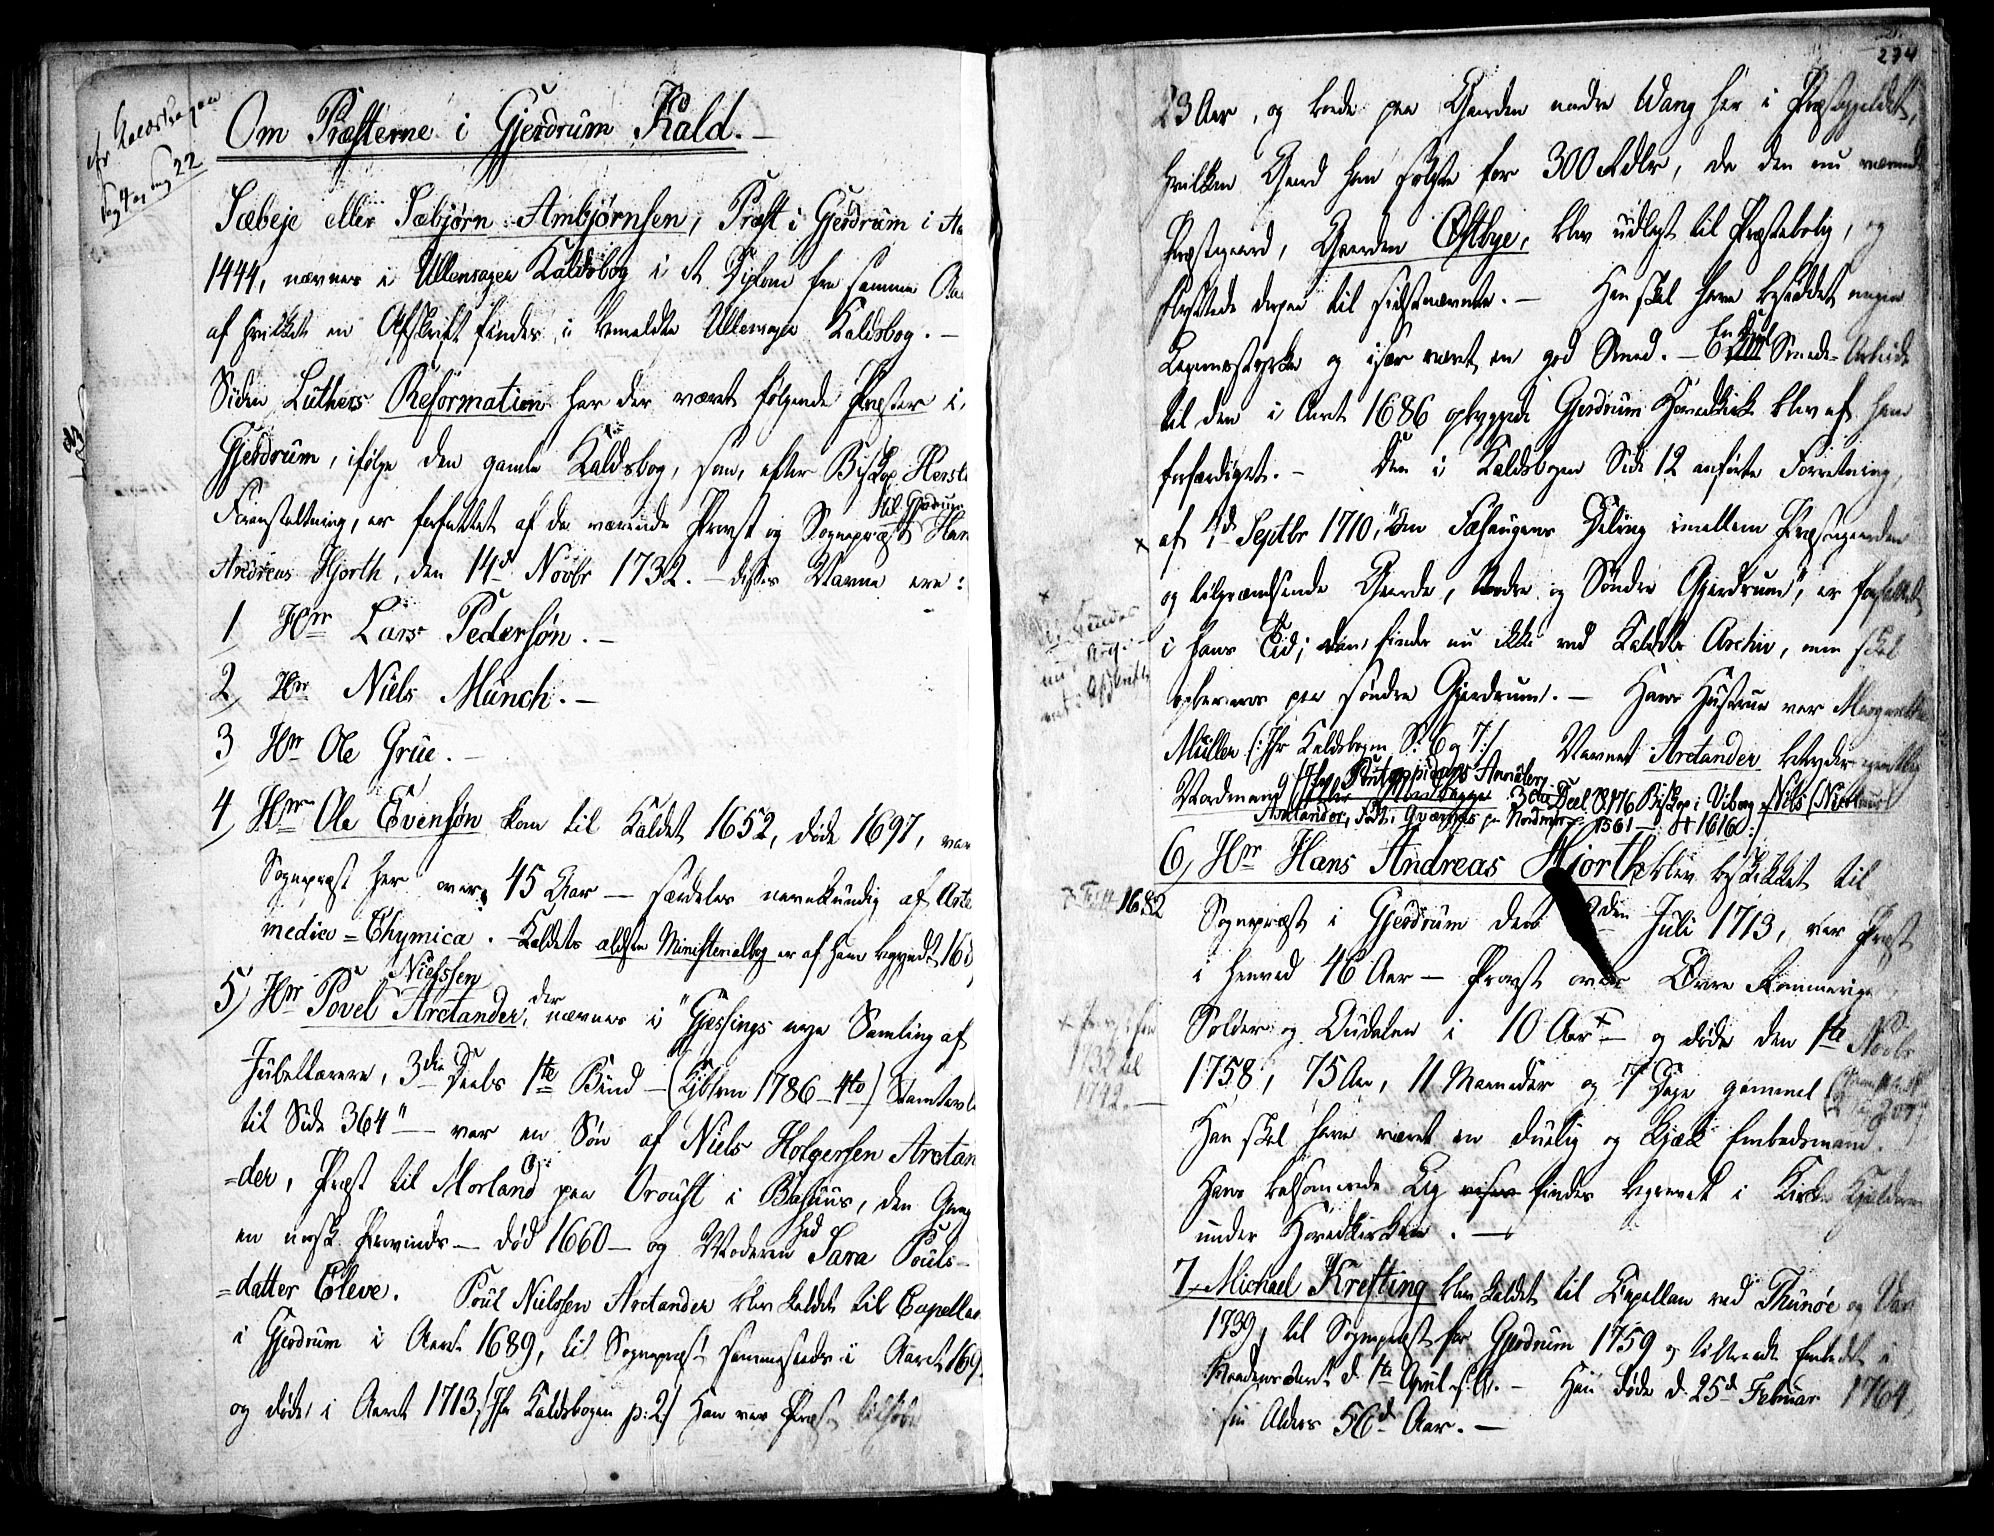 Om Præsterne i Gjerdrum Kald. —
Sæbeje eller Sæbjørn Ambjørnsen, Præst i Gjerdrum i
1444, nævnes i Ullensager Kaldsbog i et Diplom fra samme
af hvilket en Afskrift findes i bemeldte Ullensager Kaldsbog. —
Siden Luthers Reformation har der været følgende Præster i
Gjerdrum, ifølge den gamle Kaldsbog, som, efter Biskop Hersle
Foranstaltning, er forfattet af da værende Provst og Sognepræst til Gjerdrum Han
Andreas Hjorth, den 14d Novbr 1732. — disses Navne ere:
1, Hrr Lars Pedersøn. —
2, Hrr Niels Munch. —
3, Hrr Ole Grüe. —
4, Hrr Ole Evensøn kom til Kaldet 1652, døde 1697, var
Sognepræst her over 45 Aar — særdeles navnkundig af Arte
medico = Chymica. — Kaldets ældste Ministerialbog er af ham begyndt
5, Hrr Povel Nielssen Arctander, der nævnes i "Gjessings nye Samling af
Jubellærere, 3die Deels 1te Bind — (Kjbhvn 1786 — 4to) Stamtavle
til Side 364" — var en Søn af Niels Holgersen Arctan
=der, Præst til Morland paa Oroust i Bahuus, den Gang
en norsk Provinds — død 1660 — og Moderen hed Sara Pouls-
=datter Cleve. Poul Nielssen Arctander blev kaldet til Capellan
i Gjerdrum i Aaret 1689, til Sognepræst sammesteds i Aaret 169
og døde i Aaret 1713, /Jfr Kaldsbogen p: 2/ Han var Præst
274
23 Aar, og boede paa Gaarden nedre Wang her i Præstegjeldet,
hvilken Gaard han solgte for 300 Rdlr, da den nu værende
Præstegaard, Gaarden Østbye, blev udlagt til Præstebolig, og
flyttede derpaa til sidstnævnte. — Han skal have besiddet megen
Legemsstyrke og især været en god Smed. — En Deel Smede-Arbeide
til den i Aaret 1686 opbyggede Gjerdrum Hovedkirke blev af ham
forfærdiget. — Den i Kaldsbogen Side 12 anførte Forretning,
× af 1d Septbr 1710, "om Fæhaugens Deling imellem Præstegaarden
og tilgrændsende Gaarde, Nedre og Søndre Gjerdrum", er forfattet
i hans Tid; den findes nu ikke ved Kaldets Archiv, men skal
opbevares paa søndre Gjerdrum. — Hans Hustrue var Margarethe
Müller /: Jfr Kaldsbogen S: 6 og 7:/ Navnet Arctander betyder
Nordmand (Jfr Pontoppidans Annaler
3die Deel S. 176 Biskop i Viborg Niels (Nicolaus)
Arctander, født i Nordmør 1561 — † 1616)
6, Hrr Hans Andreas Hjorth blev beskikket til
Sognepræst i Gjerdrum den den Juli 1713, var Præst
i henved 46 Aar — Provst over Øvre Romerige
Solder og Oudalen i 10 Aar × — og døde den 1te Novbr
1758, 75 Aar, 11 Maaneder og 7 Dage gammel
Han skal have været en duelig og kjæk Embedsmand.
Hans balsamerede Lig findes begravet i Kirke Kjelderen
under Hovedkirken. —
7, Michael Krefting blev kaldet til Capellan ved Thunøe og
1739, til Sognepræst for Gjerdrum 1759 og tiltraadte Embedet i
d. 1te April s. A. — Han døde d. 25d Februar 1764,
sin Alders 56d Aar. —
1682
1732 til
1742. —